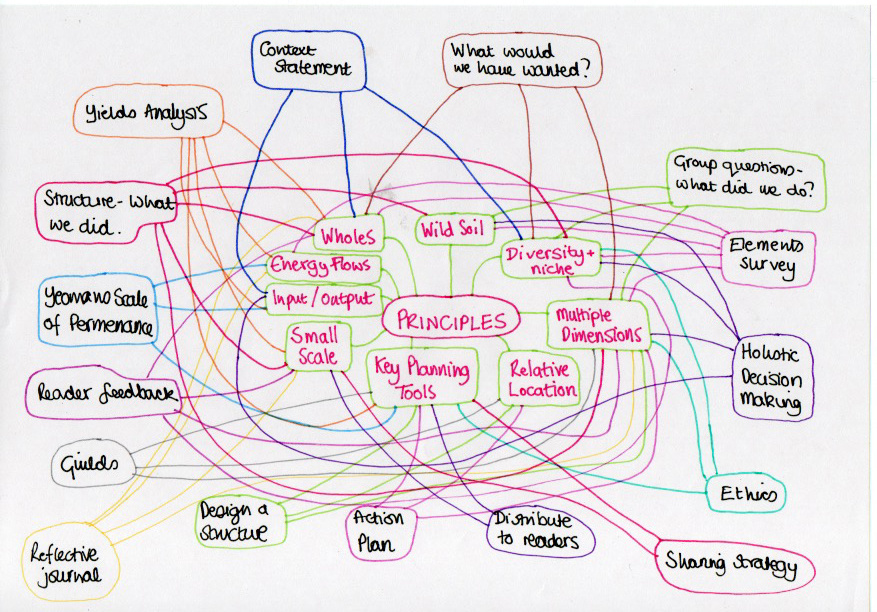 Context
Statement
What would
we have wanted?
Yields Analysis
Group questions-
what did we do?
Structure- what
we did.
Wholes
Wild Soil
Elements
Survey
Diversity +
niche
Energy Flows
Yeomans Scale
of Permenance
Input / output
PRINCIPLES
Multiple
Dimensions
Small
Scale
Key Planning
Tools
Relative
Location
Holistic
Decision
Making
Reader feedback
Guilds
Ethics
Design a
Structure
Action
Plan
Distribute
to readers
Reflective
journal
Sharing Strategy